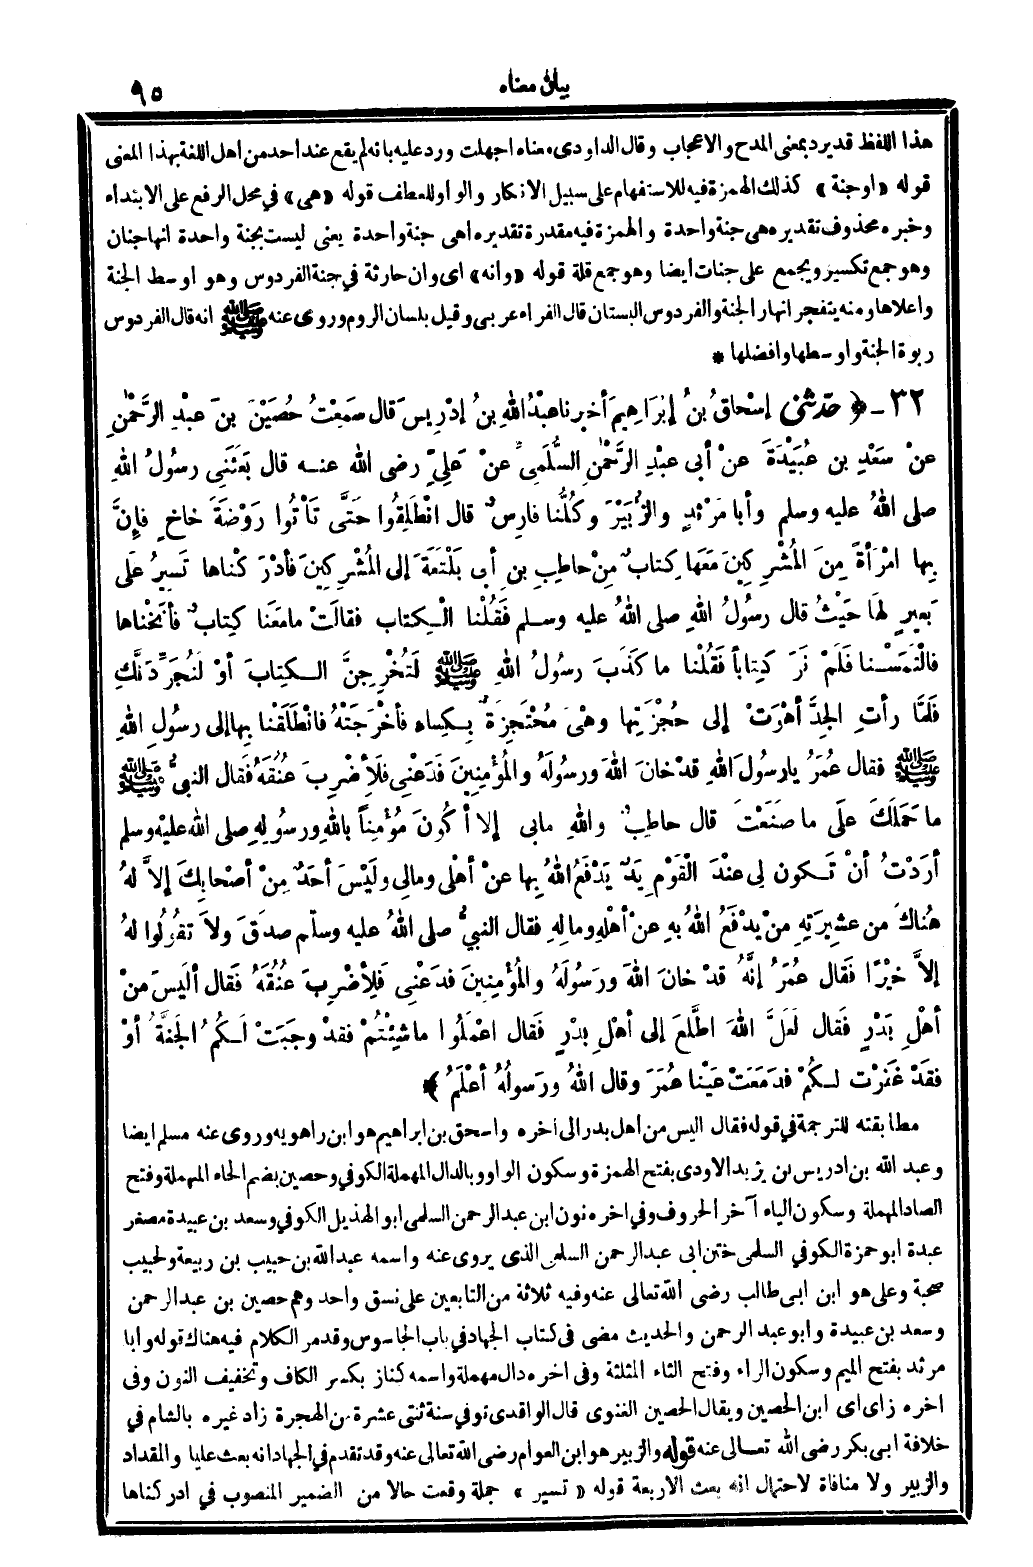 بيان معناه ٩٥
هذا اللفظ قد يرد بمعنى المدح والاعجاب وقال الداودى معناه اجهلت ورد عليه بانه لم يقع عند احد من اهل اللغة بهذا المعنى
قوله «اوجنة» كذلك الهمزة فيه للاستفهام على سبيل الانكار والواو للعطف قوله «هى» في محل الرفع على الابتداء
وخبره محذوف تقديره هى جنة واحدة والهمزة فيه مقدرة تقديره أهى جنة واحدة يعنى ليست بجنة واحدة انها جنان
وهو جمع تكسير ويجمع على جنات ايضا وهو جمع قلة قوله «وانه» اى وان حارثة في جنة الفردوس وهو اوسط الجنة
واعلاها ومنه يتفجر انهار الجنة والفردوس البستان قال الفراء عربى وقيل بلسان الروم وروى عنه ﷺ انه قال الفردوس
ربوة الجنة واوسطها وافضلها *
٣٢ - ﴿ حَدَّثَنِي إِسْحَاقُ بنُ إِبْرَاهِيمَ أخبرنا عَبْدُ اللهِ بنُ إدْرِيسَ قال سَمِعْتُ حُصَيْنَ بنَ عبْدِ الرَّحْمٰنِ
عنْ سَعْدِ بن عُبَيْدَةَ عنْ أبى عبْدِ الرَّحْمٰنِ السُّلَمِىِّ عنْ عَلِيٍّ رضى الله عنه قال بَعَثَنِى رسولُ اللهِ
صلى اللهُ عليه وسلم وأبا مَرْثَدٍ والزُّبَيْرَ وكُلُّنا فارِسٌ قال انْطَلِقُوا حَتَّى تَأْتُوا رَوْضَةَ خاخٍ فإنَّ
بِها امْرَأةً مِنَ المُشْرِكِينَ مَعَها كِتابٌ مِنْ حاطِبِ بنِ أبى بَلْتَعَةَ إلى المُشْرِكِينَ فَأدْرَكْناها تَسِيرُ عَلَى
بَعِيرٍ لَها حَيْثُ قال رسولُ اللهِ صلى اللهُ عليه وسلم فَقُلْنا الْكِتاب فقالَتْ ما مَعَنا كِتابٌ فأنَخْناها
فالْتَمَسْنا فَلَمْ نَرَ كِتاباً فَقُلْنا ما كَذَبَ رسولُ اللهِ ﷺ لَتُخْرِجِنَّ الكِتابَ أوْ لَنُجَرِّدَنَّكِ
فَلَمَّا رأتِ الجِدَّ أهْوَتْ إلى حُجْزَتِها وهْىَ مُحْتَجِزَةٌ بِكِساءٍ فأخْرَجَتْهُ فانْطَلَقْنا بِها إلى رسولِ اللهِ
ﷺ فقال عُمَرُ يا رسولَ اللهِ قدْ خانَ اللهَ ورسولَهُ والمُؤْمِنِينَ فَدَعْنِى فَلِأَضْرِبَ عُنُقَهُ فقال النبىُّ ﷺ
ما حَمَلَكَ عَلَى ما صَنَعْتَ قال حاطِبٌ واللهِ مابى إلا أكُونَ مُؤْمِناً باللهِ ورسولِهِ صلى الله عليه وسلم
أرَدْتُ أنْ تَكون لِى عنْدَ الْقَوْمِ يَدٌ يَدْفَعُ اللهُ بِها عنْ أهْلِى ومالِى ولَيْسَ أحَدٌ مِنْ أصْحابِكَ إلاَّ لهُ
هُناكَ مِن عشِيرَتِهِ مِنْ يدْفَعُ اللهُ بهِ عنْ أهْلِهِ ومالِهِ فقال النبىُّ صلى اللهُ عليه وسلّم صدَقَ ولاَ تقُولُوا لهُ
إلاَّ خَيْرًا فَقال عُمَرُ إنَّهُ قدْ خانَ اللهَ ورَسُولَهُ والمُؤْمِنِينَ فدَعْنِى فَلِأَضْرِبَ عنُقَهُ فَقال ألَيْسَ مِنْ
أهْلِ بَدْرٍ فَقال لَعَلَّ اللهَ اطَّلَعَ إلى أهْلِ بدْرٍ فَقال اعْمَلُوا ما شِئْتُمْ فقدْ وجَبَتْ لَكُمُ الجَنَّةُ أوْ
فقَدْ غَفَرْت لكُمْ فدَمَعَتْ عَيْنا عُمَرَ وقال اللهُ ورَسولُهُ أعْلَمُ ﴾ *
مطابقته للترجمة في قوله فقال اليس من اهل بدر الى آخره واسحق بن ابراهيم هو ابن راهويه وروى عنه مسلم ايضا
وعبد الله بن ادريس بن يزيد الاودى بفتح الهمزة وسكون الواو وبالدال المهملة الكوفي وحصين بضم الحاء المهملة وفتح
الصاد المهملة وسكون الياء آخر الحروف وفي آخره نون ابن عبد الرحمن السلمى ابو الهذيل الكوفي وسعد بن عبيدة مصغر
عبدة ابو حمزة الكوفي السلمى ختن ابى عبد الرحمن السلمى الذى يروى عنه واسمه عبد الله بن حبيب بن ربيعة ولحبيب
صحبة وعلى هو ابن ابى طالب رضى الله تعالى عنه وفيه ثلاثة من التابعين على نسق واحد وهم حصين بن عبد الرحمن
وسعد بن عبيدة وابو عبد الرحمن والحديث مضى في كتاب الجهاد في باب الجاسوس وقد مر الكلام فيه هناك قوله وابا
مرثد بفتح الميم وسكون الراء وفتح الثاء المثلثة وفى آخره دال مهملة واسمه كناز بكسر الكاف وتخفيف النون وفى
آخره زاى اى ابن الحصين ويقال الحصين الغنوى قال الواقدى توفي سنة ثنتى عشرة من الهجرة زاد غيره بالشام في
خلافة ابى بكر رضى الله تعالى عنه قوله والزبير هو ابن العوام رضى الله تعالى عنه وقد تقدم في الجهاد انه بعث عليا والمقداد
والزبير ولا منافاة لاحتمال انه بعث الاربعة قوله «تسير» جملة وقعت حالا من الضمير المنصوب في ادركناها